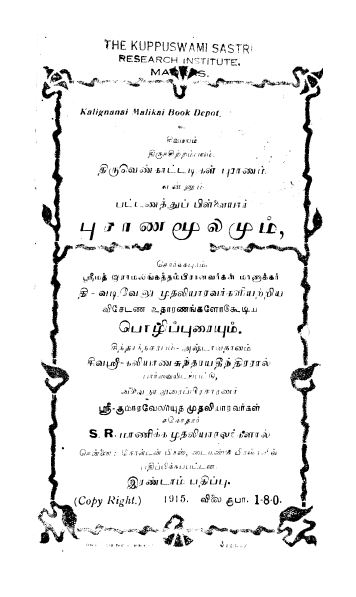 THE KUPPUSWAMI SASTRI
RESEARCH INSTITUTE,
MADRAS.
Kalignanai Malikai Book Depot.
சிவமயம்
திருச்சிற்றம்பலம்.
திருவெண்காட்டடிகள் புராணம்
என்னும்
பட்டணத்துப் பிள்ளையார்
புராணமூலமும்,
ஸ்ரீமத் இராமலிங்கத்தம்பிரானவர்கள் மாணாக்கர்
தி - வடிவேலு முதலியாரவர்களியற்றிய
விசேடண உதாரணங்களோடுகூடிய
பொழிப்புரையும்.
அஷ்டாவதானம்
சிவஸ்ரீ-கலியாணசுந்தரயதீந்திரரால்
பார்வையிடப்பட்டு,
ஸ்ரீ-குமாரவேலாயுத முதலியாரவர்கள்
S. R. மாணிக்க முதலியாரவர்களால்
பதிப்பிக்கப்பட்டன.
இரண்டாம் பதிப்பு.
(Copy Right.) 1915. விலை ரூபா. 1-8-0.